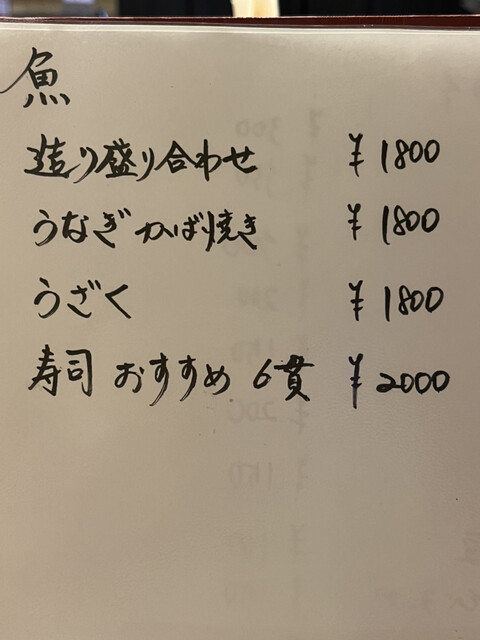 魚
造り盛り合わせ ¥1800
うなぎかば焼き ¥1800
うざく ¥1800
寿司 おすすめ 6貫 ¥2000